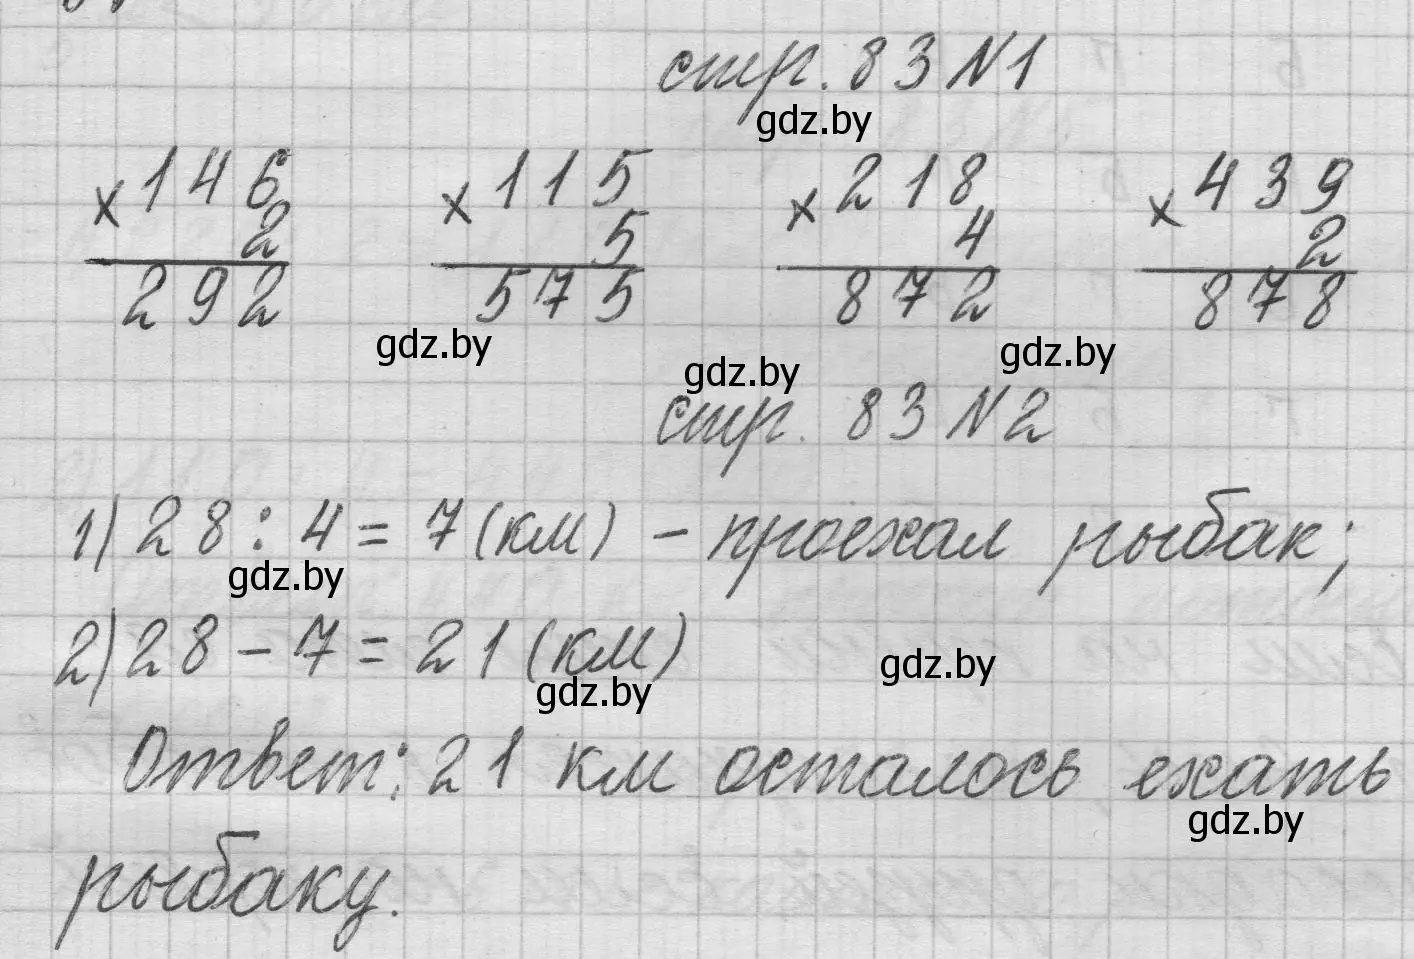 стр. 83 N 1
gdz.by
× 146 × 115 × 218 × 439
2 5 4 2
292 575 872 878
gdz.by gdz.by gdz.by
стр. 83 N 2
1) 28 : 4 = 7 (км) - проехал рыбак;
gdz.by
2) 28 - 7 = 21 (км)
gdz.by gdz.by
Ответ: 21 км осталось ехать
gdz.by
рыбаку.